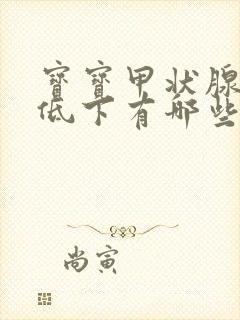 寳寳甲状腺
低下有哪些
尚寅